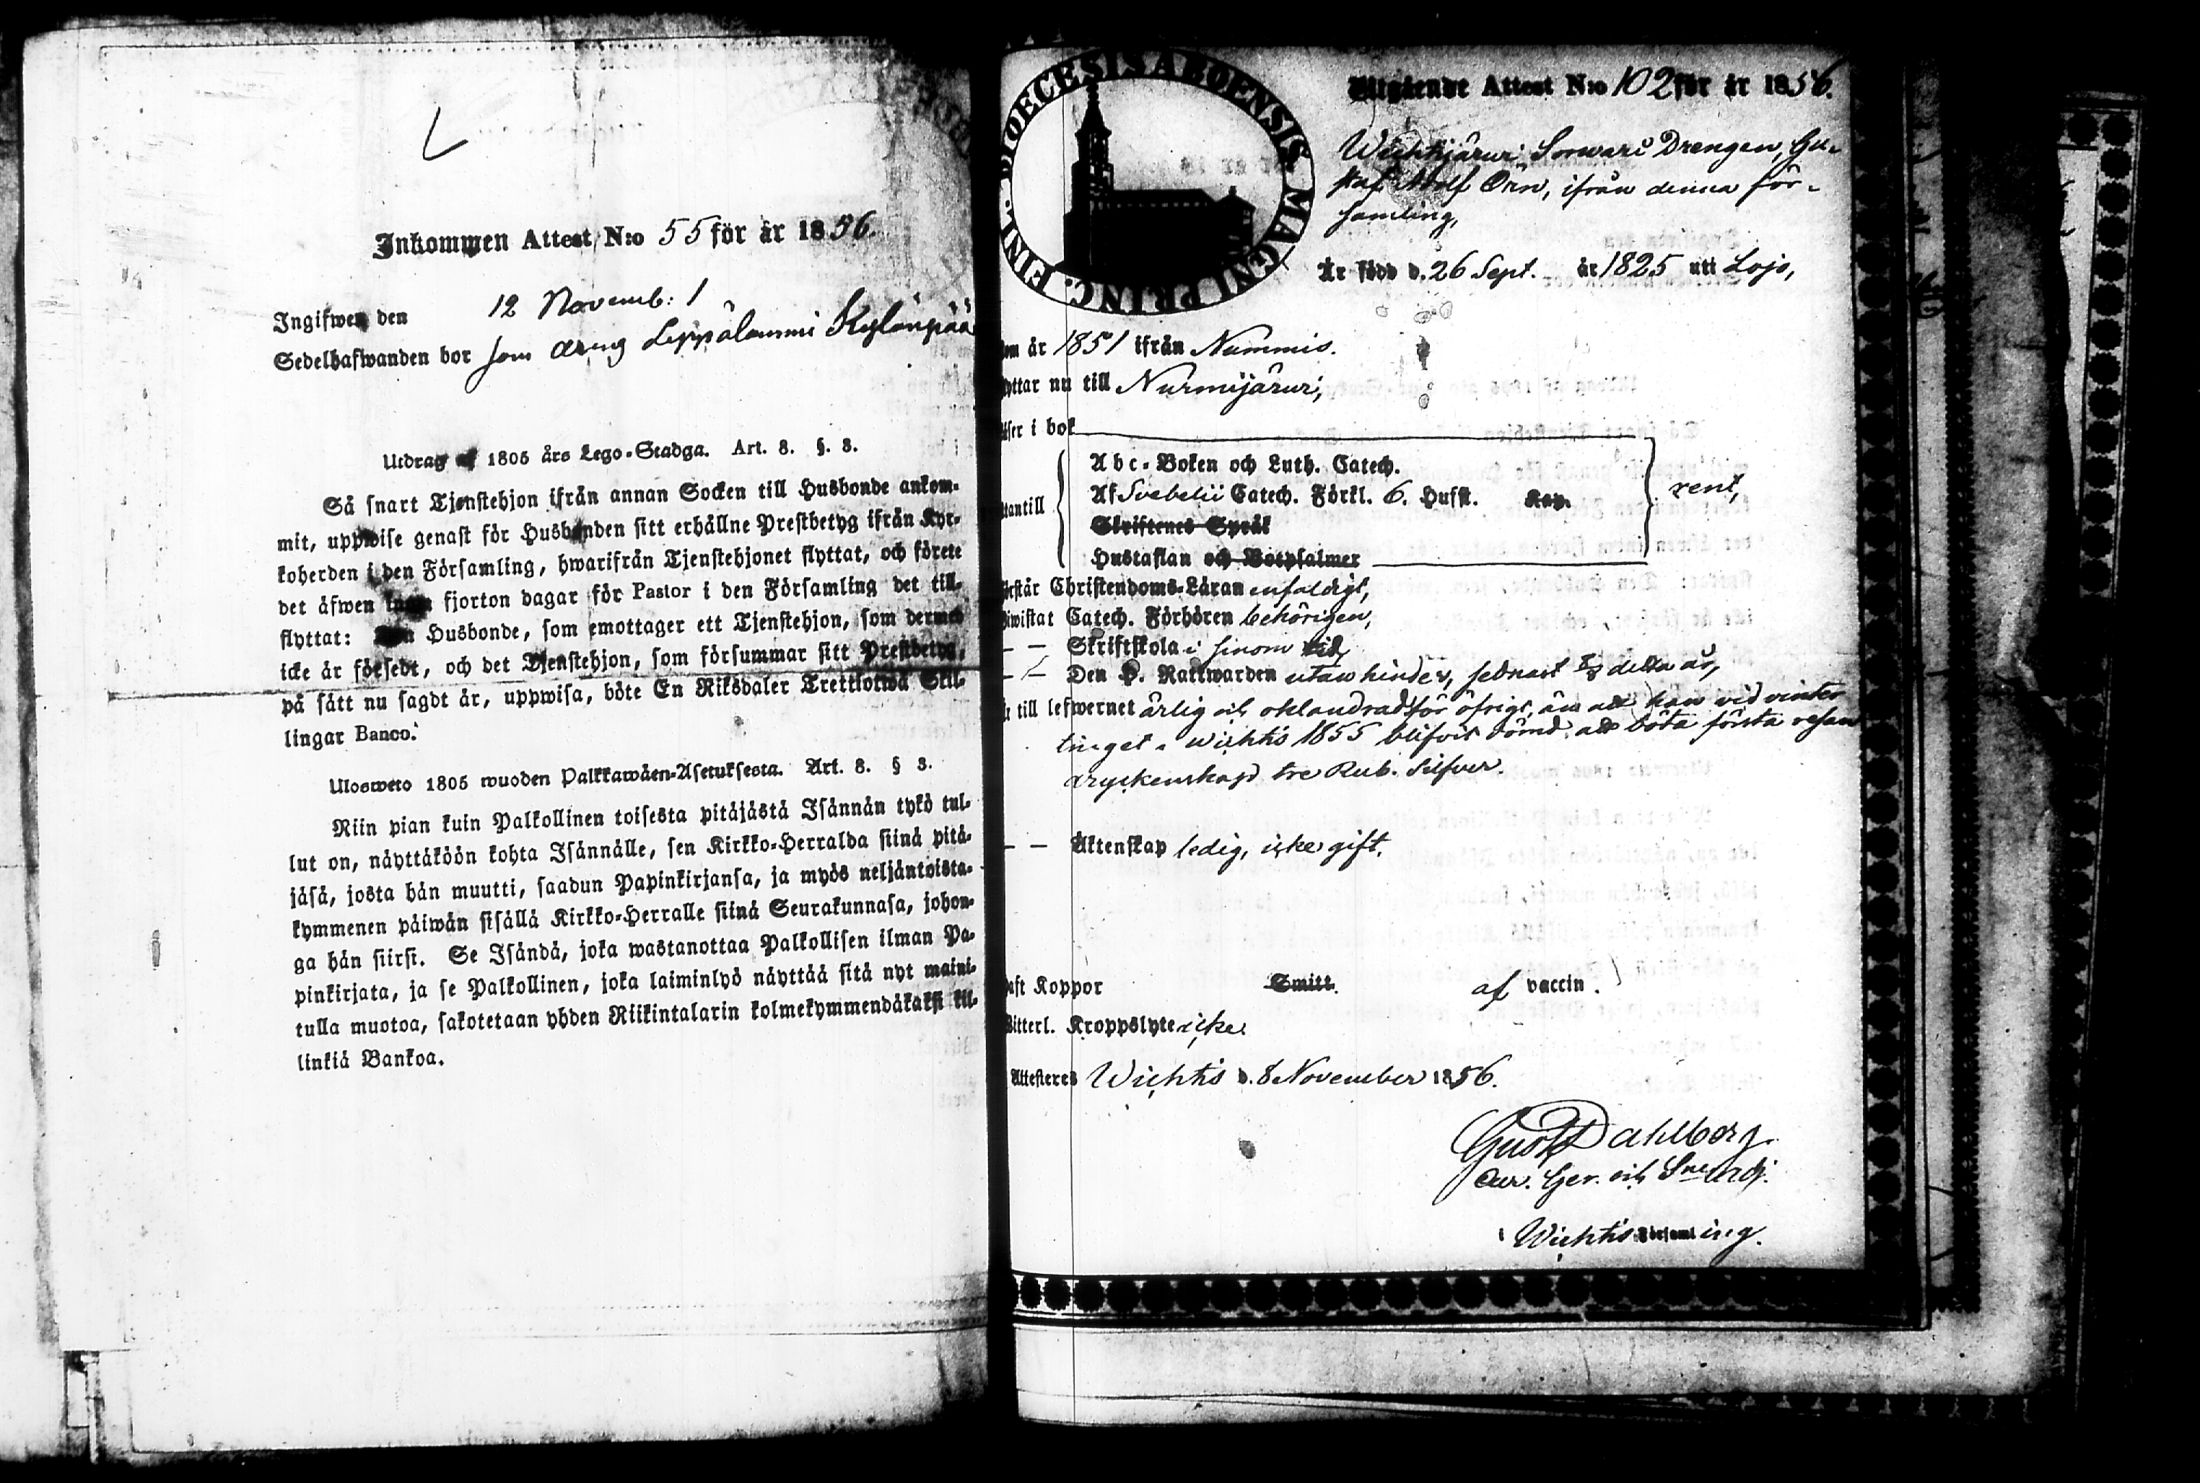 Inkommen Attest N:o 55 för år 1856.
Ingifwen den 12 Novemb:
Sedelhafwanden bor som dreng Leppälammi Kylänpää
Utdrag af 1805 års Lego-Stadga. Art. 8. §. 3.
Så snart Tjenstehjon ifrån annan Socken till Husbonde ankom-
mit, uppwise genast för Husbonden sitt erhållne Prestbetyg ifrån Kyr-
koherden i den Församling, hwarifrån Tjenstehjonet flyttat, och förete
det äfwen inom fjorton dagar för Pastor i den Församling det till-
flyttat: Den Husbonde, som emottager ett Tjenstehjon, som dermed
icke är försedt, och det Tjenstehjon, som försummar sitt Prestbetyg,
på sätt nu sagdt är, uppwisa, böte En Riksdaler Trettiotwå Skil-
lingar Banco.
Ulosweto 1805 wuoden Palkkawäen-Asetuksesta. Art. 8. § 3.
Niin pian kuin Palkollinen toisesta pitäjästä Isännän tykö tul-
lut on, näyttäköön kohta Isännälle, sen Kirkko-Herralda siinä pitä-
jäsä, josta hän muutti, saadun Papinkirjansa, ja myös neljäntoista-
kymmenen päiwän sisällä Kirkko-Herralle siinä Seurakunnasa, johon-
ga hän siirsi. Se Isändä, joka wastanottaa Palkollisen ilman Pa-
pinkirjata, ja se Palkollinen, joka laiminlyö näyttää sitä nyt maini-
tulla muotoa, sakotetaan yhden Riikintalarin kolmekymmendäkaksi kil-
linkiä Bankoa.
DIOECESIS ABOENSIS MAGNI PRINC. FINL.
Utgående Attest N:o 102 för år 1856.
Wichtijärwi Sorwari Drengen, Gu-
staf Adolf Örn, ifrån denna för-
samling,
Är född d. 26 Sept. år 1825 uti Lojo,
om år 1851 ifrån Nummis.
yttar nu till Nurmijärwi,
äser i bok
Abc-Boken och Luth. Catech.
Af Svebelii Catech. Förkl. 6. Hufst. Kap.
Skriftenes Språk
Hustaflan och Botpsalmer
utantill
rent,
rstår Christendoms-Läran enfaldigt,
iwistat Catech. Förhören behörigen,
— — Skriftskola i sinom tid,
— — Den H. Nattwarden utan hinder, sednast detta år,
till lefwernet ärlig och oklandrad för öfrigt, än att han vid vinter
tinget i Wichtis 1855 blifvit dömd att böta första resan
dryckenskap tre Rub. Silfver.
— — Äktenskap ledig, icke gift.
aft Koppor Smitt. af vaccin.
itterl. Kroppslyte icke.
Attesteres Wichtis d. 8 November 1856.
Gust Dahlberg.
Cur. Ger. och Sne Adj.
i Wichtis Församling.